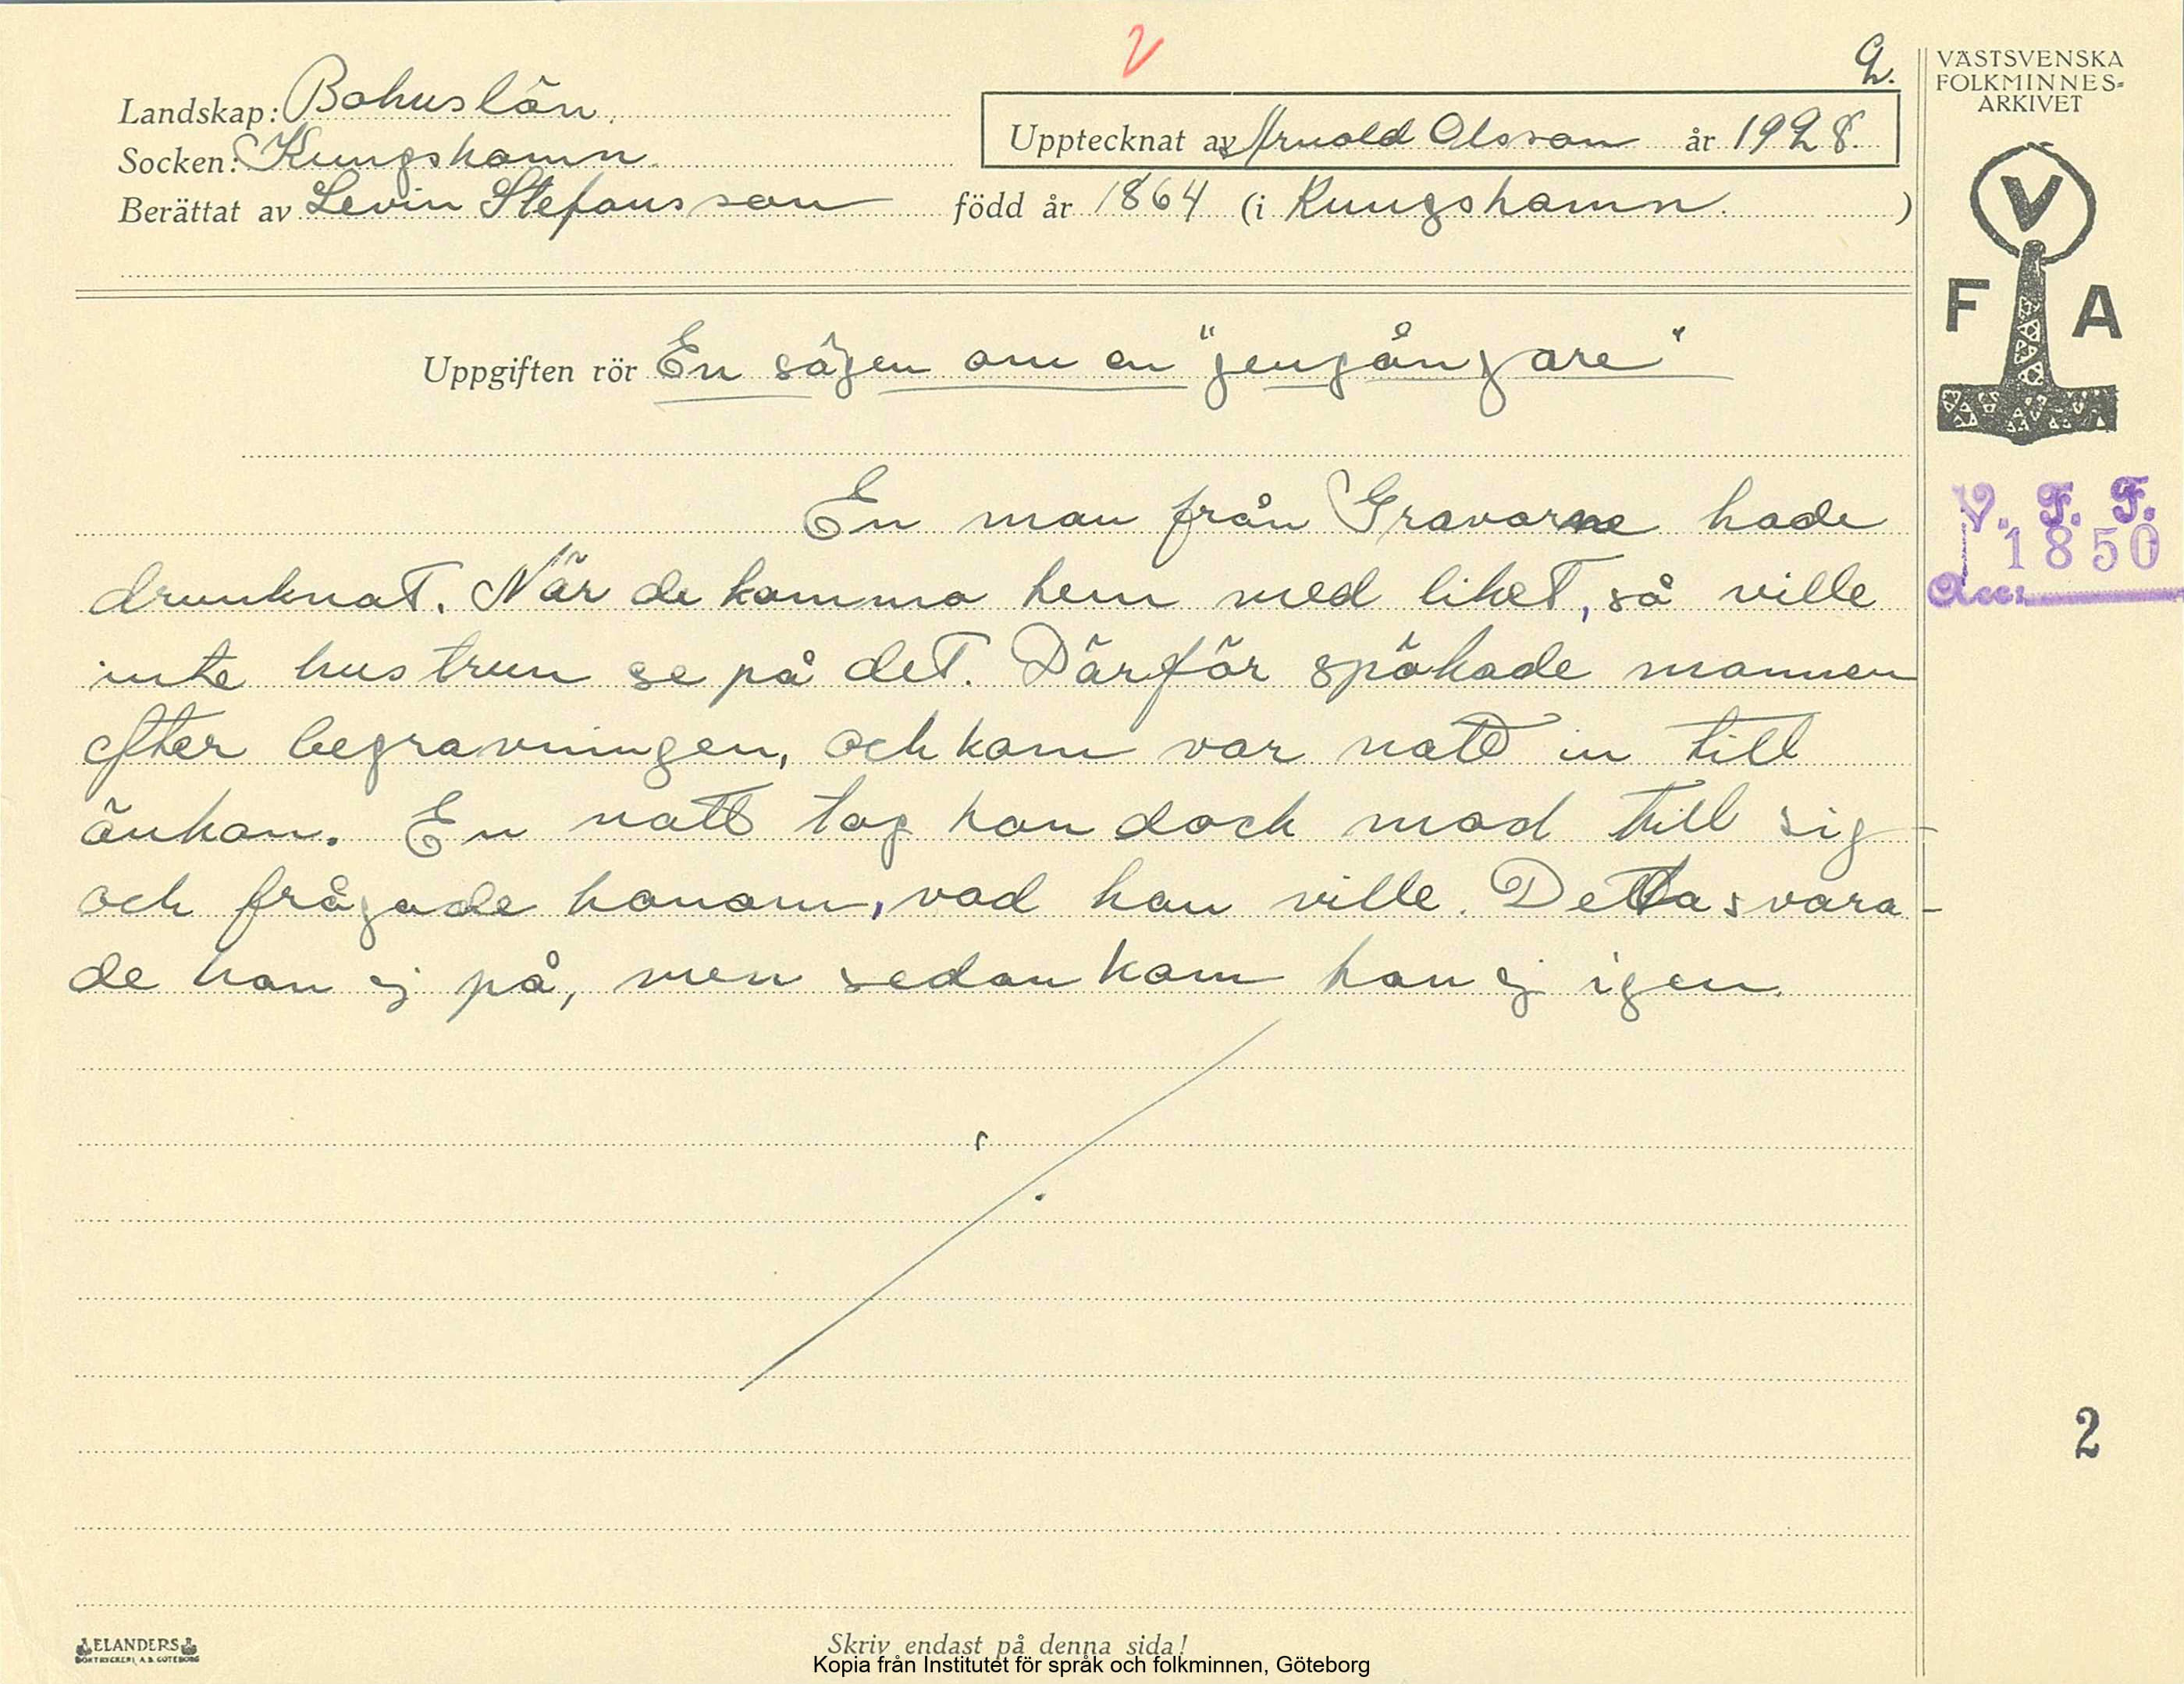 2.
Landskap: Bohuslän.
Socken: Kungshamn.
Upptecknat av Arnold Olsson år 1928.
Berättat av Levin Stefansson född år 1864 (i Kungshamn. )
Uppgiften rör En sägen om en "gengångare"
En man från Gravarne hade
drunknat. När de kommo hem med liket, så ville
inte hustrun se på det. Därför spökade mannen
efter begravningen, och kom var natt in till
änkan. En natt tog hon dock mod till sig
och frågade honom, vad han ville. Detta svara-
de han ej på, men sedan kom han ej igen.
VÄSTSVENSKA
FOLKMINNES-
ARKIVET
V
F A
V. F. F.
1850
Acc.
2
ELANDERS
BOKTRYCKERI A.B. GÖTEBORG
Skriv endast på denna sida!
Kopia från Institutet för språk och folkminnen, Göteborg